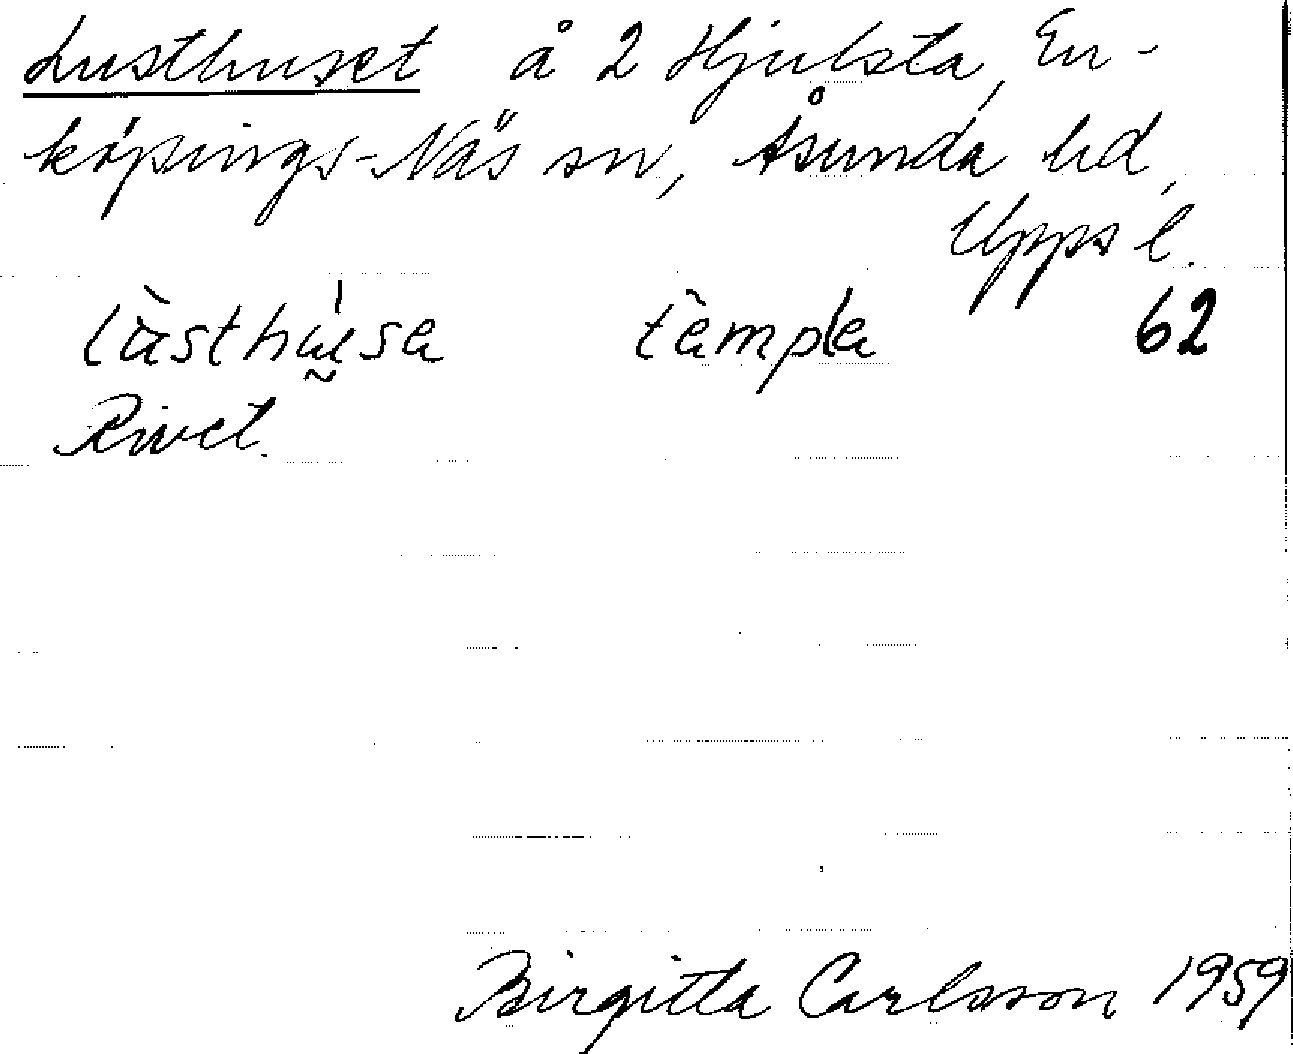 Lusthuset å 2 Hjulsta, En-
köpings-Näs sn, Åsunda hd,
Upps l.
62
Rivet.
Birgitta Carlsson 1959